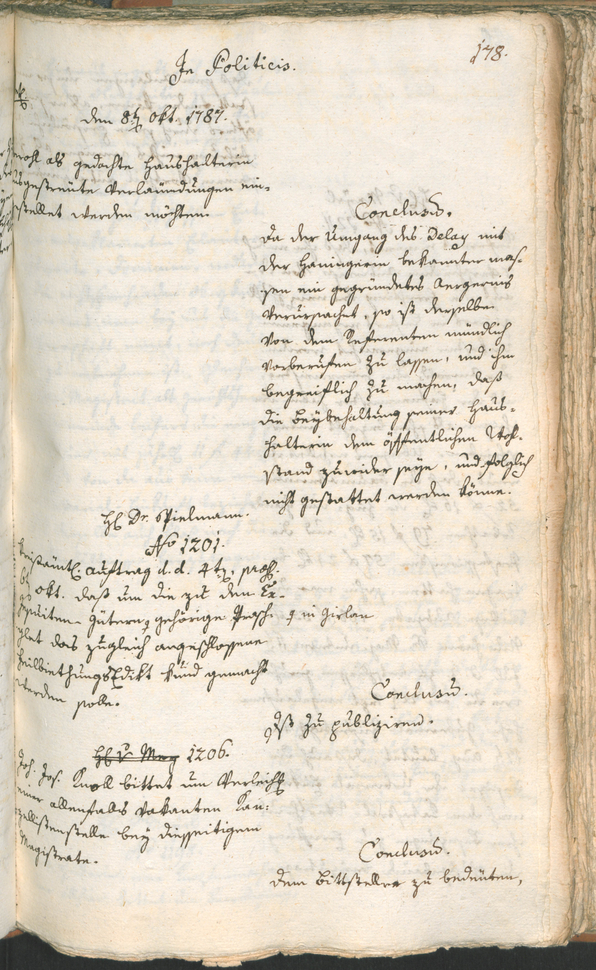 178.
In Politicis.
den 8t 8br. 1787.
wohl als gedachte Haushalterin
ausgestreute Verläumdungen ein-
gestellet werden möchten.
Conclusū.
Da der Umgang des Delay mit
der Haningerin bekannter mas-
sen ein gegründetes Aergernis
verursachet, so ist derselbe
von dem Referenten mündlich
vorberufen zu lassen, und ihm
begreiflich zu machen, daß
die Beybehaltung seiner Haus-
halterin dem öffentlichen Wohl-
stand zuwider seye, und folglich
nicht gestattet werden könne.
H. Dr. Spielmann.
No 1201.
Kreisämtl. Auftrag d. d. 4t, prs.
Okt. daß um die zu den Ex-
jesuiten-Gütern gehörige
in Girlan
das zugleich angeschlossene
Feilbiethungs Edikt kund gemacht
werden solle.
Conclusū.
Ist zu publiziren.
1206.
Joh. Jos. Knoll bittet um Verleih
einer allenfalls vakanten Kan-
zellistenstelle bey diesseitigem
Magistrate.
Conclusū.
Dem Bittsteller zu bedeuten,